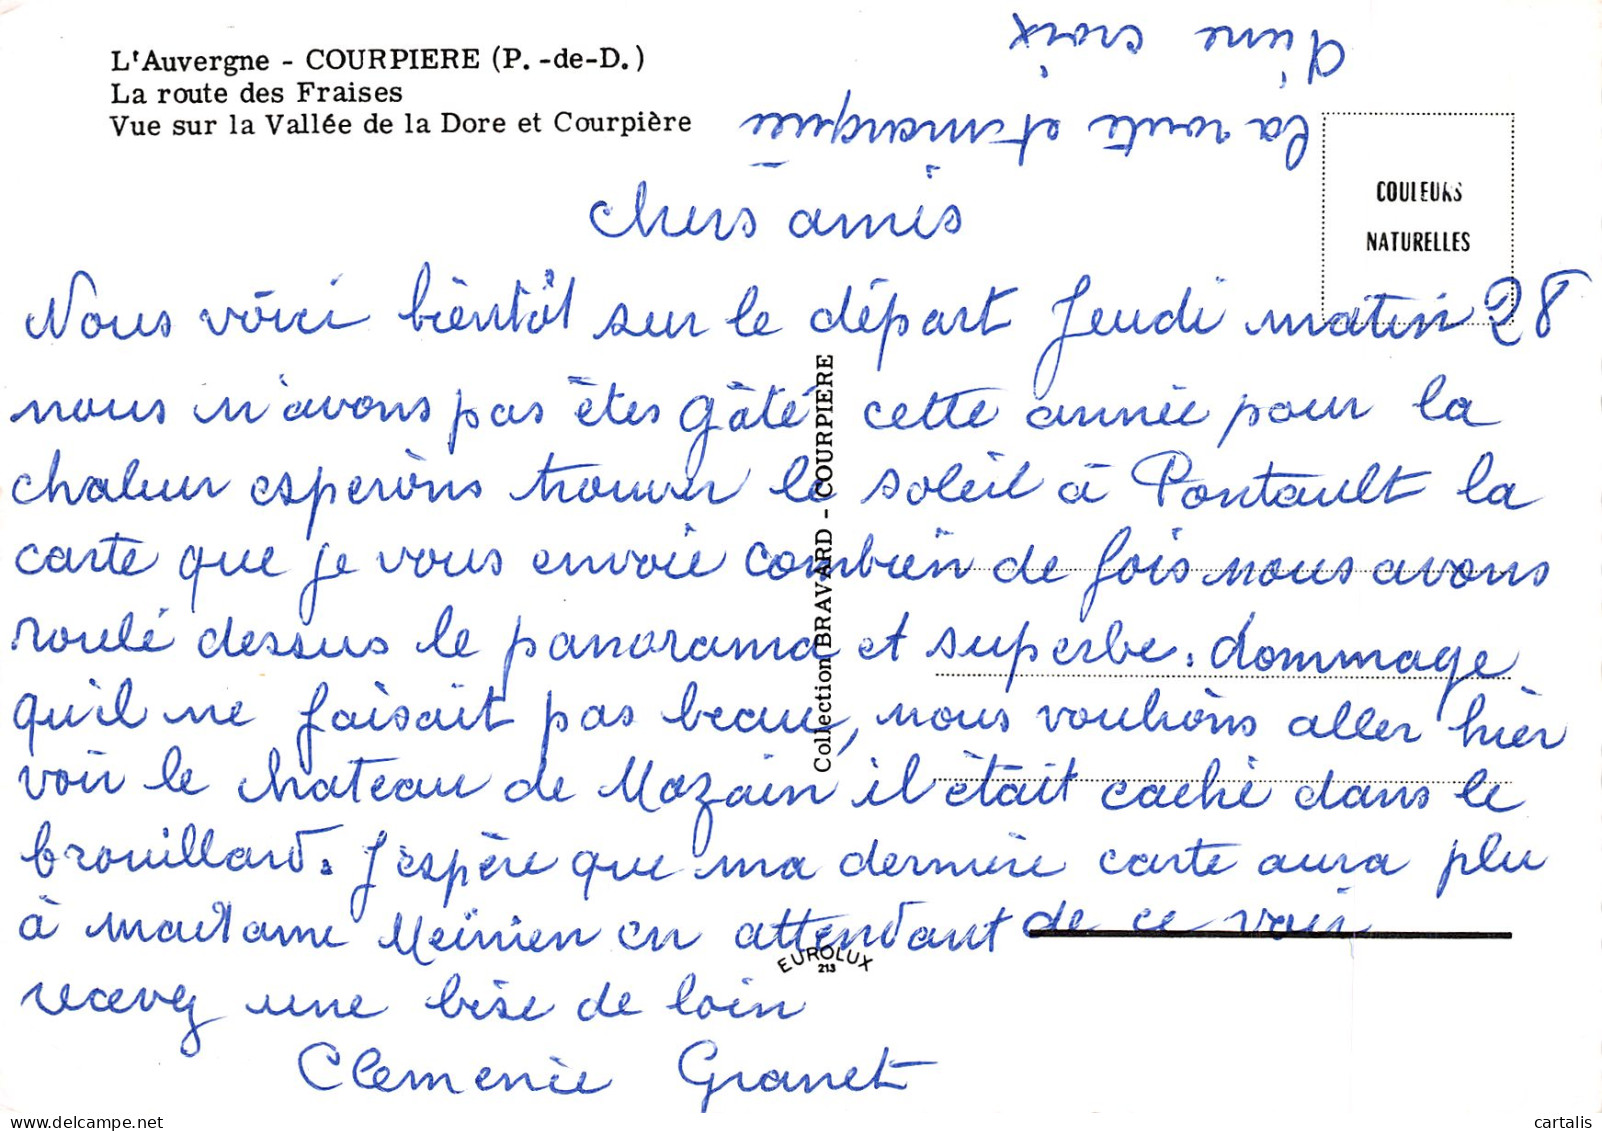 L'Auvergne - COURPIERE (P. -de-D.)
La route des Fraises
Vue sur la Vallée de la Dore et Courpière
la route et marquée
d'une croix
COULEURS
NATURELLES
Chers amis
Nous voici bientôt sur le départ Jeudi matin 28
nous n'avons pas êtes gâté cette année pour la
chaleur esperons trouver le soleil à Pontault la
carte que je vous envoie combien de fois nous avons
roulé dessus le panorama et superbe. dommage
qu'il ne faisait pas beau, nous voulions aller hier
voir le chateau de Mozain il était caché dans le
brouillard. J'espère que ma dernière carte aura plu
à madame Meinien en attendant de ce voir
recevez une bise de loin
Clemence Granet
Collection BRAVARD - COURPIERE
EUROLUX
213
cartalis.net